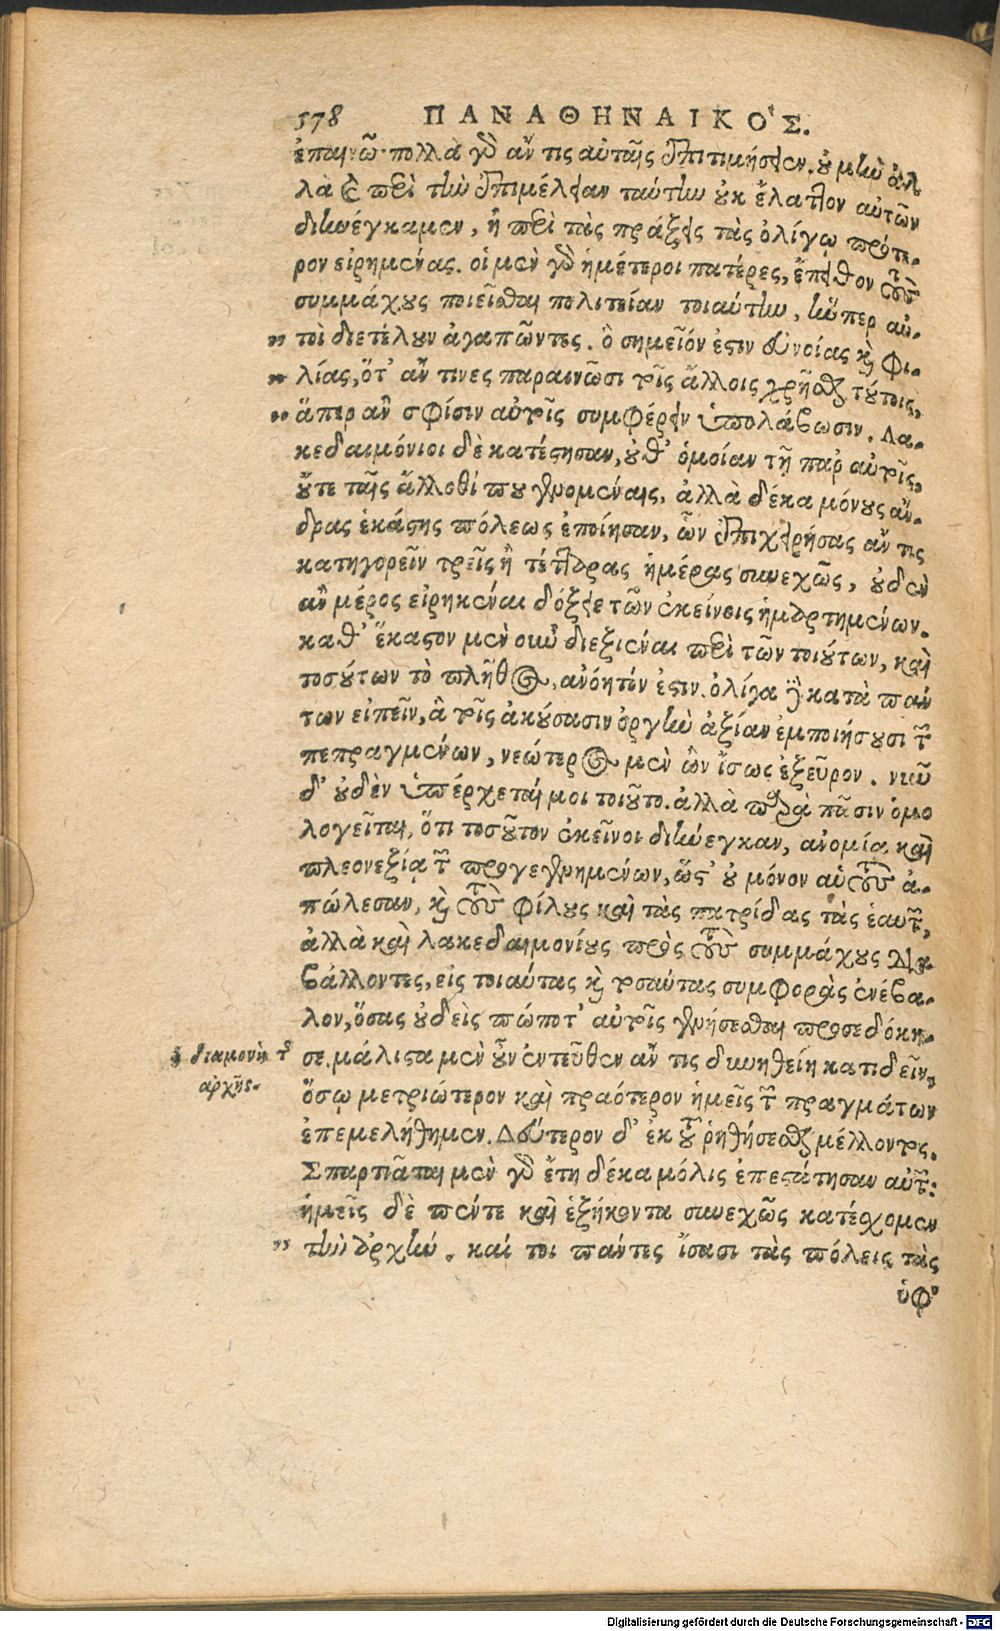 578 ΠΑΝΑΘΗΝΑΙΚΟ'Σ.
ἐπαινῶ· πολλὰ γὸ ἄν τις αὐταῖς ἐπιτιμήσειεν. οὐ μὴν ἀλ
λὰ & περὶ τὴν ἐπιμέλειαν ταύτην οὐκ ἔλαττον αὐτῶν
διηνέγκαμεν, ἢ περὶ τὰς πράξεις τὰς ὀλίγῳ πρότε-
ρον εἰρημένας. οἱ μὲν γὸ ἡμέτεροι πατέρες, ἔπειθον τοὺς
συμμάχους ποιεῖσθαι πολιτείαν τοιαύτην, ἥνπερ αὐ-
" τοὶ διετέλουν ἀγαπῶντες. ὃ σημεῖόν ἐστιν εὐνοίας κὴ φι-
" λίας, ὅτ' ἄν τινες παραινῶσι τοῖς ἄλλοις χρῆσθαι τούτοις,
" ἅπερ ἂν σφίσιν αὐτοῖς συμφέρειν ὑπολάβωσιν. Λα-
κεδαιμόνιοι δὲ κατέστησαν, οὔθ' ὁμοίαν τῇ παρ αὐτοῖς,
οὔτε ταῖς ἄλλοθί που γενομέναις, ἀλλὰ δέκα μόνους ἄν-
δρας ἑκάστης πόλεως ἐποίησαν, ὧν ἐπιχειρήσας ἄν τις
κατηγορεῖν τρεῖς ἢ τέτταρας ἡμέρας συνεχῶς, οὐδὲν
ἂν μέρος εἰρηκέναι δόξειε τῶν ἐκείνοις ἡμαρτημένων.
καθ' ἕκαστον μὲν οὖν διεξιέναι περὶ τῶν τοιούτων, καὶ
τοσούτων τὸ πλῆθος, ἀνόητόν ἐστιν. ὀλίγα δὲ κατὰ πάν
των εἰπεῖν, ἃ τοῖς ἀκούσασιν ὀργὴν ἀξίαν ἐμποιήσουσι τῶν
πεπραγμένων, νεώτερος μὲν ὢν ἴσως ἐξεῦρον. νῦν
δ' οὐδὲν ὑπέρχεταί μοι τοιοῦτο. ἀλλὰ παρὰ πᾶσιν ὁμο
λογεῖται, ὅτι τοσοῦτον ἐκεῖνοι διήνεγκαν, ἀνομίᾳ καὶ
πλεονεξίᾳ τῶν προγεγενημένων, ὥστ' οὐ μόνον αὑτοὺς ἀ-
πώλεσαν, κὴ τοὺς φίλους καὶ τὰς πατρίδας τὰς ἑαυτῶν,
ἀλλὰ καὶ λακεδαιμονίους πρὸς τοὺς συμμάχους δια-
βάλλοντες, εἰς τοιαύτας κὴ τοσαύτας συμφορὰς ἐνέβα-
λον, ὅσας οὐδεὶς πώποτ' αὐτοῖς γενήσεσθαι προσεδόκη-
ἡ διαμονὴ τῆς σε. μάλιστα μὲν οὖν ἐντεῦθεν ἄν τις δυνηθείη κατιδεῖν,
ἀρχῆς. ὅσῳ μετριώτερον καὶ πραότερον ἡμεῖς τῶν πραγμάτων
ἐπεμελήθημεν. Δεύτερον δ' ἐκ τοῦ ῥηθήσεσθαι μέλλοντος.
Σπαρτιᾶται μὲν γὸ ἔτη δέκα μόλις ἐπεστάτησαν αὐτῶν:
ἡμεῖς δὲ πέντε καὶ ἑξήκοντα συνεχῶς κατέσχομεν
" τὴν ἀρχήν. καί τοι πάντες ἴσασι τὰς πόλεις τὰς
ὑφ'
Digitalisierung gefördert durch die Deutsche Forschungsgemeinschaft - DFG